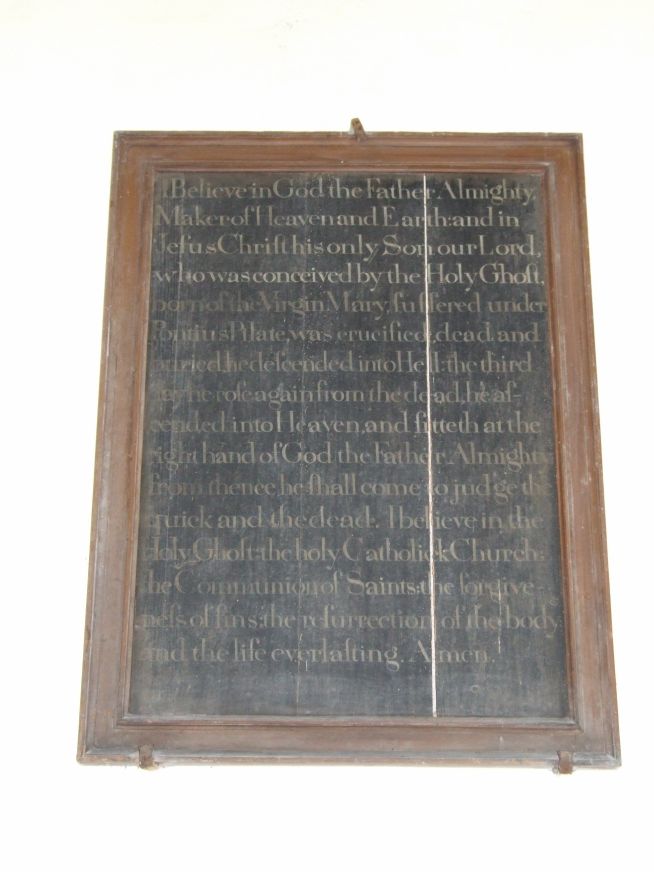 I Believe in God the Father Almighty,
Maker of Heaven and Earth: and in
Jeſus Chriſt his only Son our Lord,
who was conceived by the Holy Ghoſt,
born of the Virgin Mary, ſuffered under
Pontius Pilate, was crucified, dead, and
buried, he deſcended into Hell: the third
day he roſe again from the dead, he aſ-
cended into Heaven, and ſitteth at the
right hand of God the Father Almighty
from thence he ſhall come to judge the
quick and the dead. I believe in the
Holy Ghoſt: the holy Catholick Church:
the Communion of Saints: the forgive-
neſs of ſins: the reſurrection of the body:
and the life everlaſting. Amen.